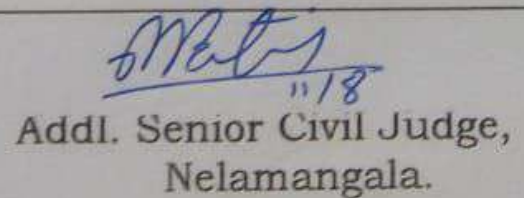 11/8
Addl. Senior Civil Judge,
Nelamangala.